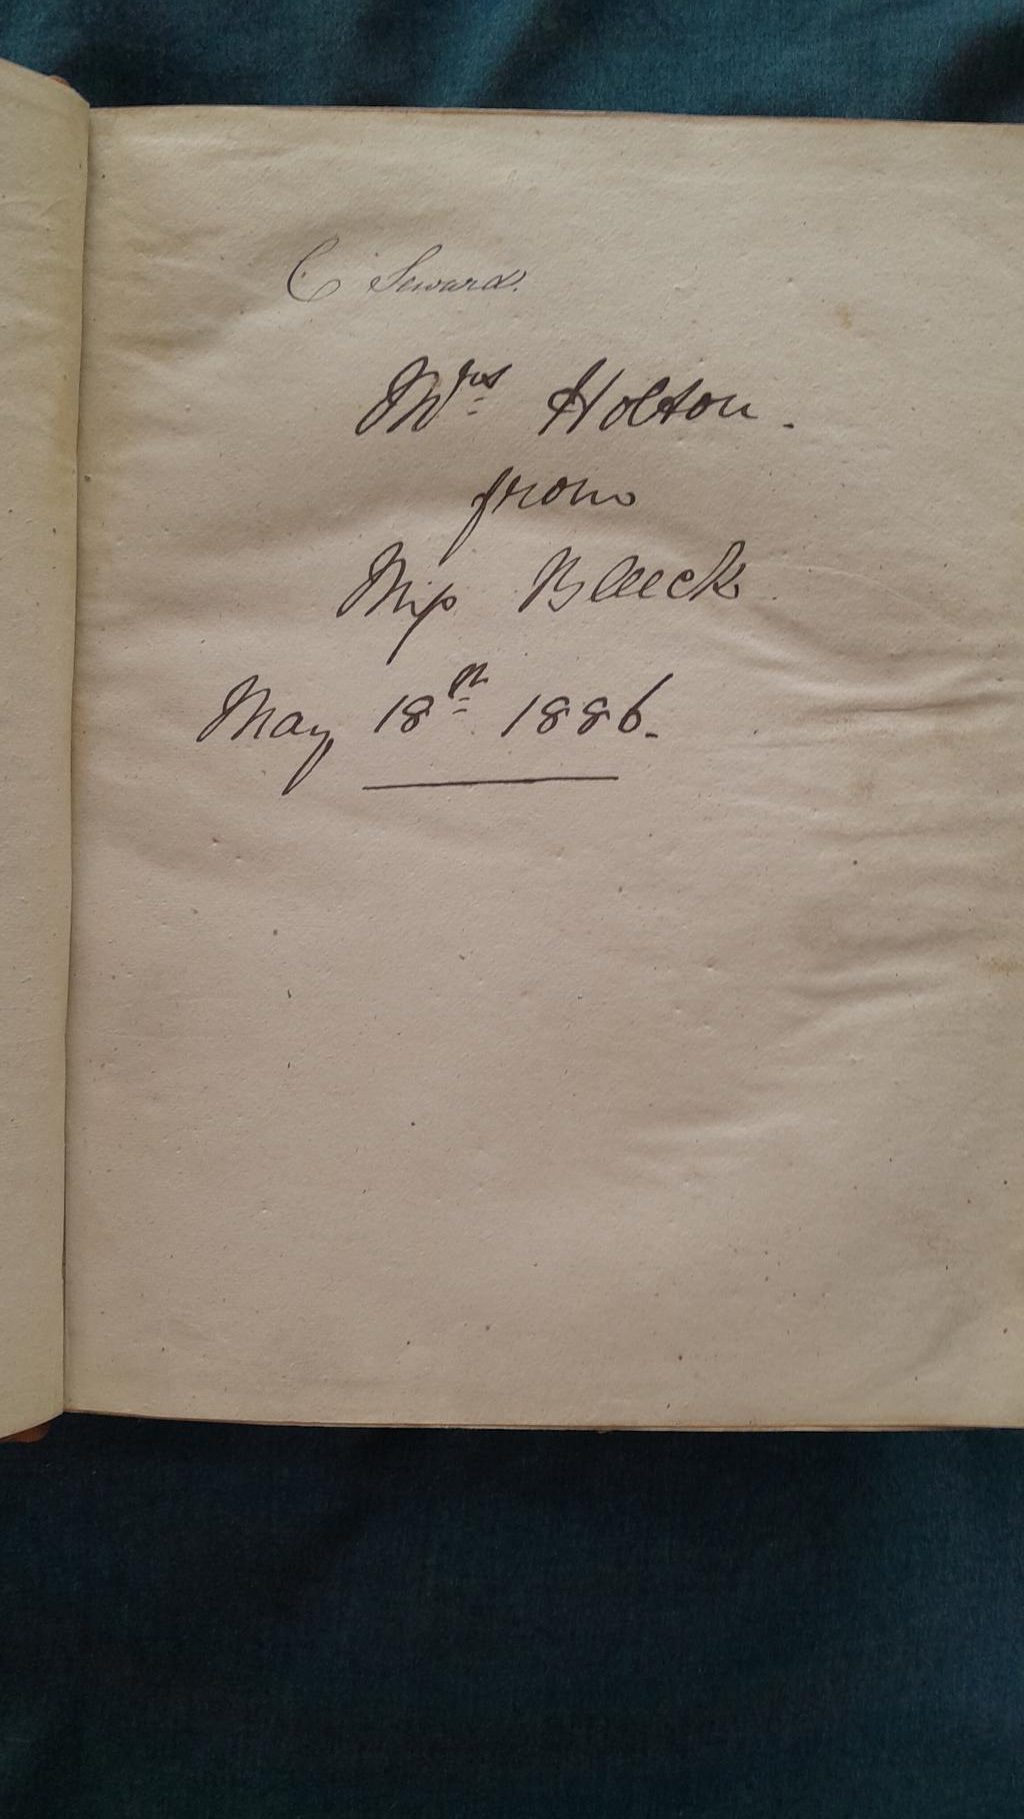 C Seward.
Mrs Holton.
from
Miss Bleeck
May 18th 1886.